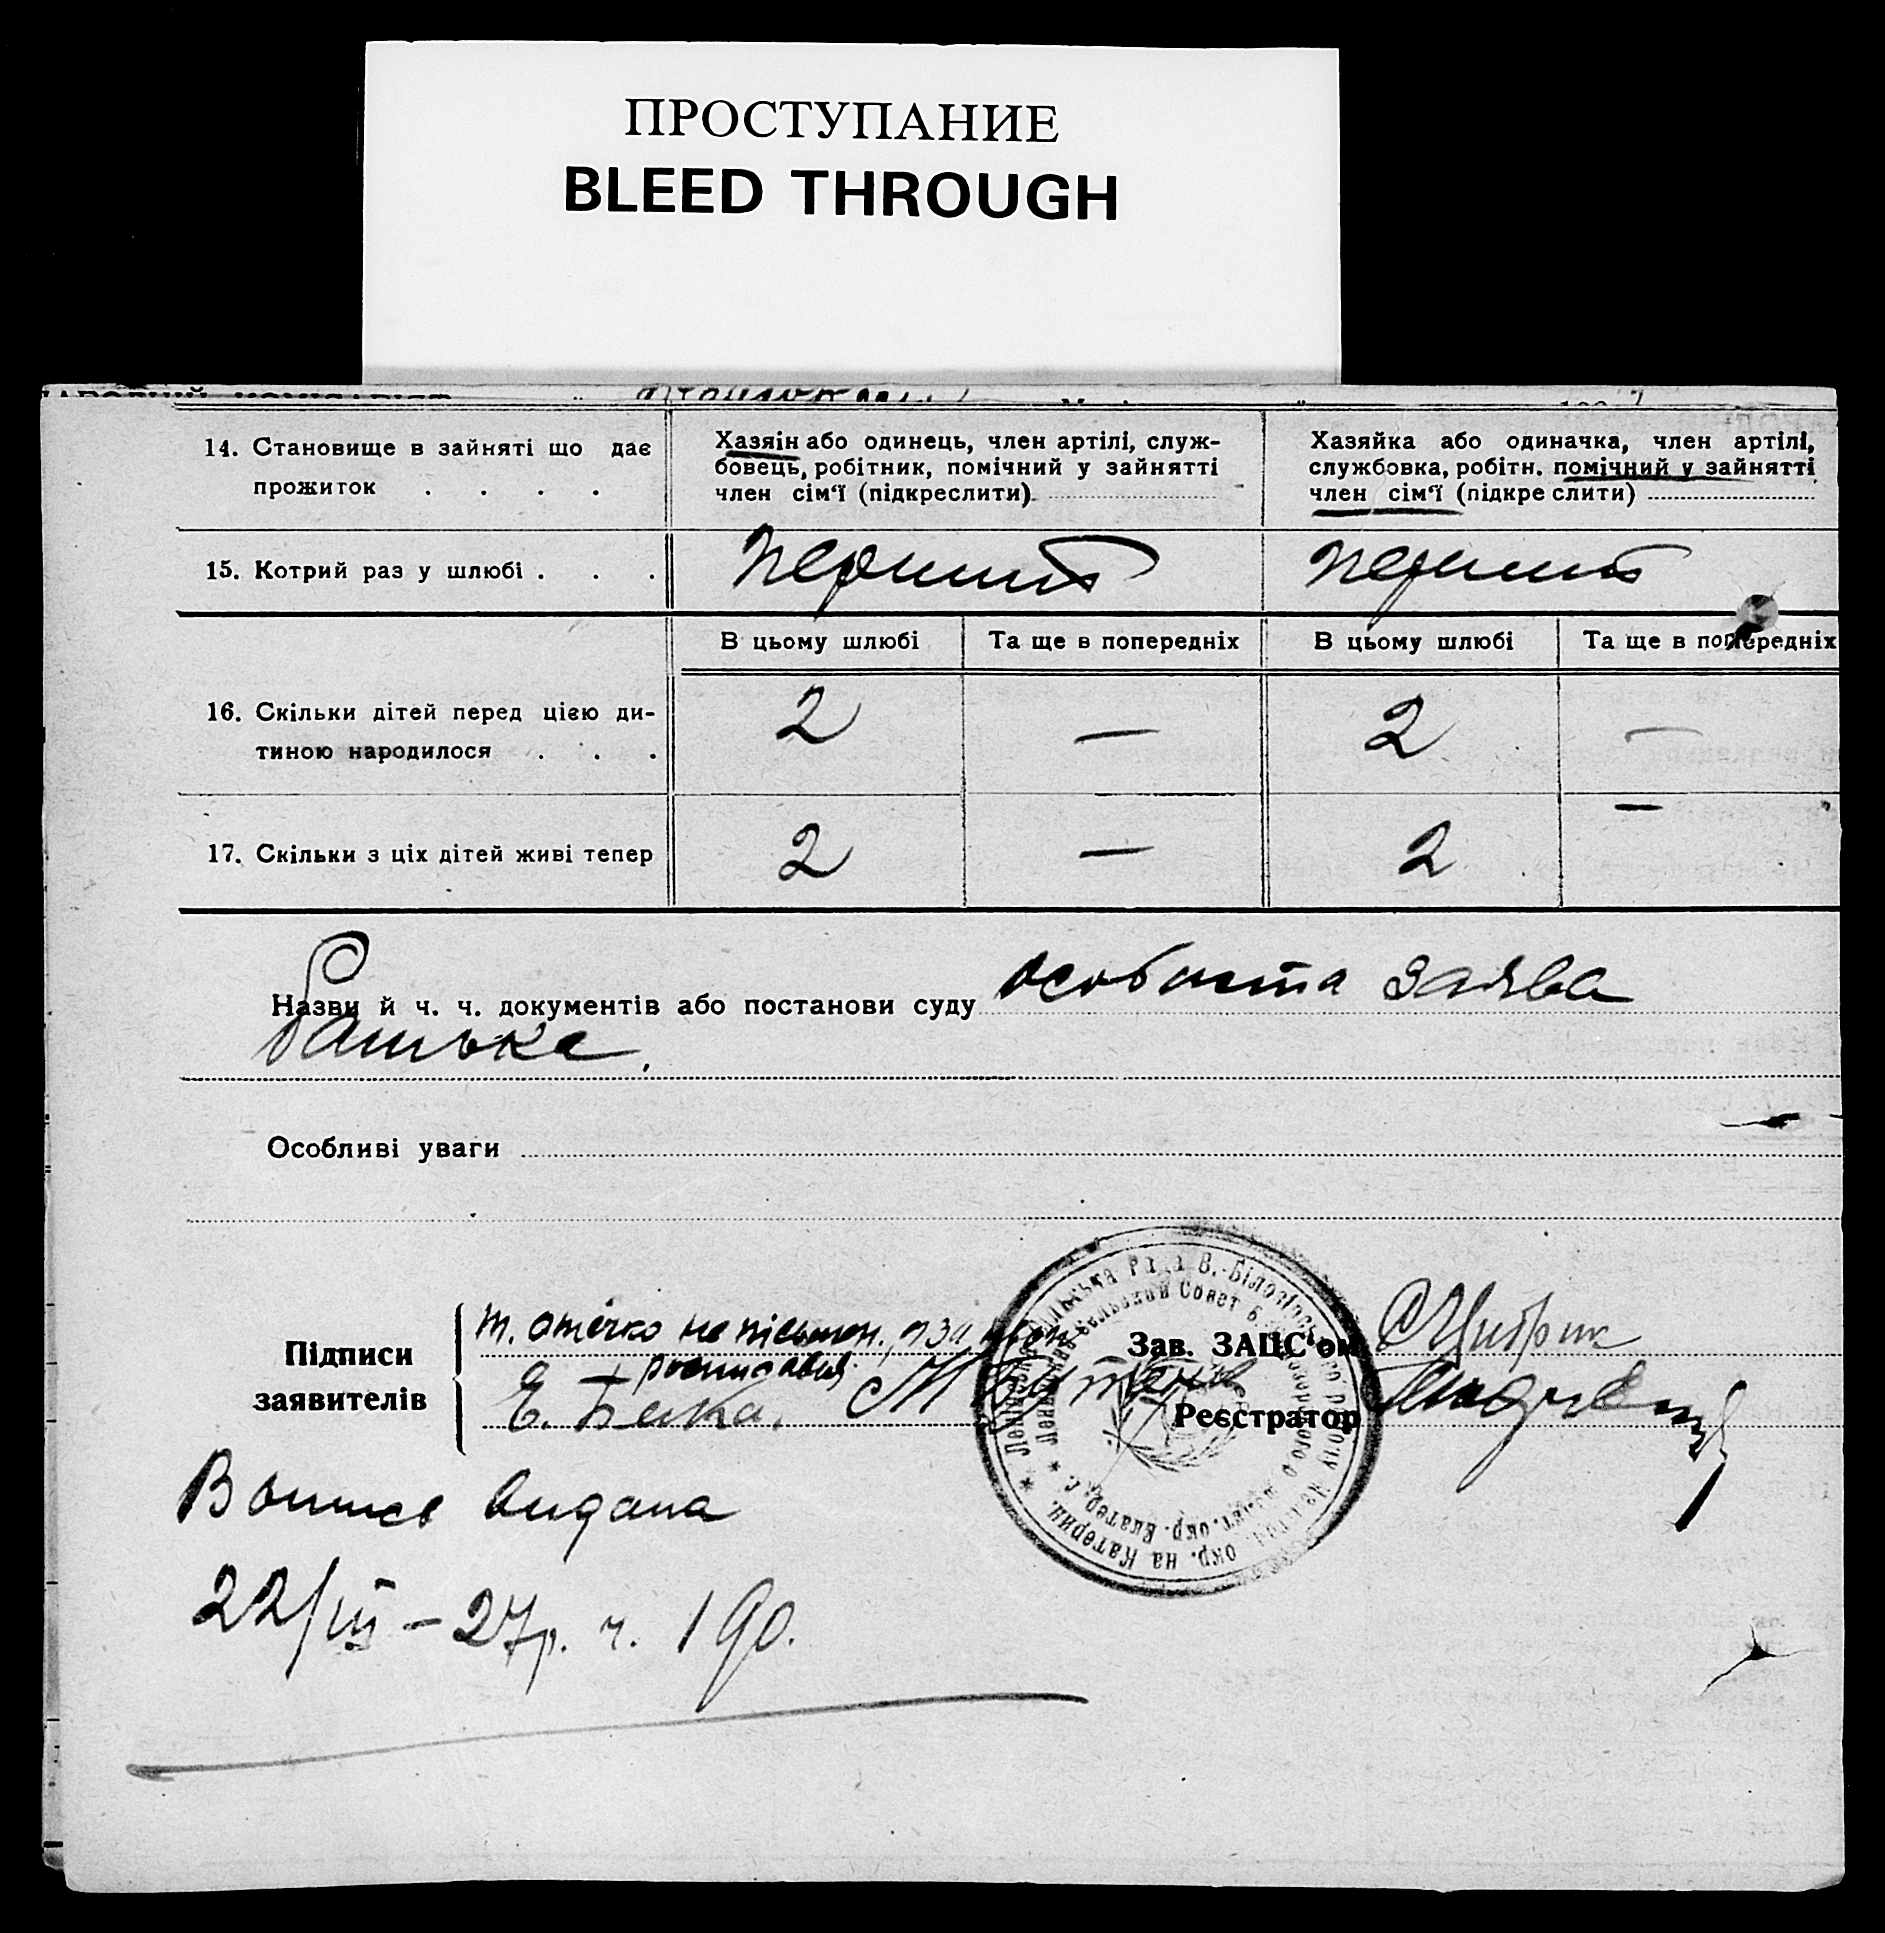 ПРОСТУПАНИЕ
BLEED THROUGH
14. Становище в зайняті що дає
прожиток . . . .
Хазяін або одинець, член артілі, служ-
бовець, робітник, помічний у зайнятті
член сім‘ї (підкреслити)
Хазяйка або одиначка, член артілі,
службовка, робітн. помічний у зайнятті
член сім‘ї (підкреслити)
15. Котрий раз у шлюбі . . .
перший
перший
В цьому шлюбі
Та ще в попередніх
В цьому шлюбі
Та ще в попередніх
16. Скільки дітей перед цією ди-
тиною народилося . . .
2 — 2 —
17. Скільки з ціх дітей живі тепер
2 — 2 —
Назви й ч. ч. документів або постанови суду особиста заява
батька,
Особливі уваги
Підписи
заявителів
т. Отечко не письмен.,
росписався
Е. Бека.
Зав. ЗАЦС‘ом
Реєстратор
Ленінська Сільська Рада В.-Білозірського району Запоріз. окр. на Катерин.
Сельский Совет
Выпись видана
22/III – 27р. ч. 190.